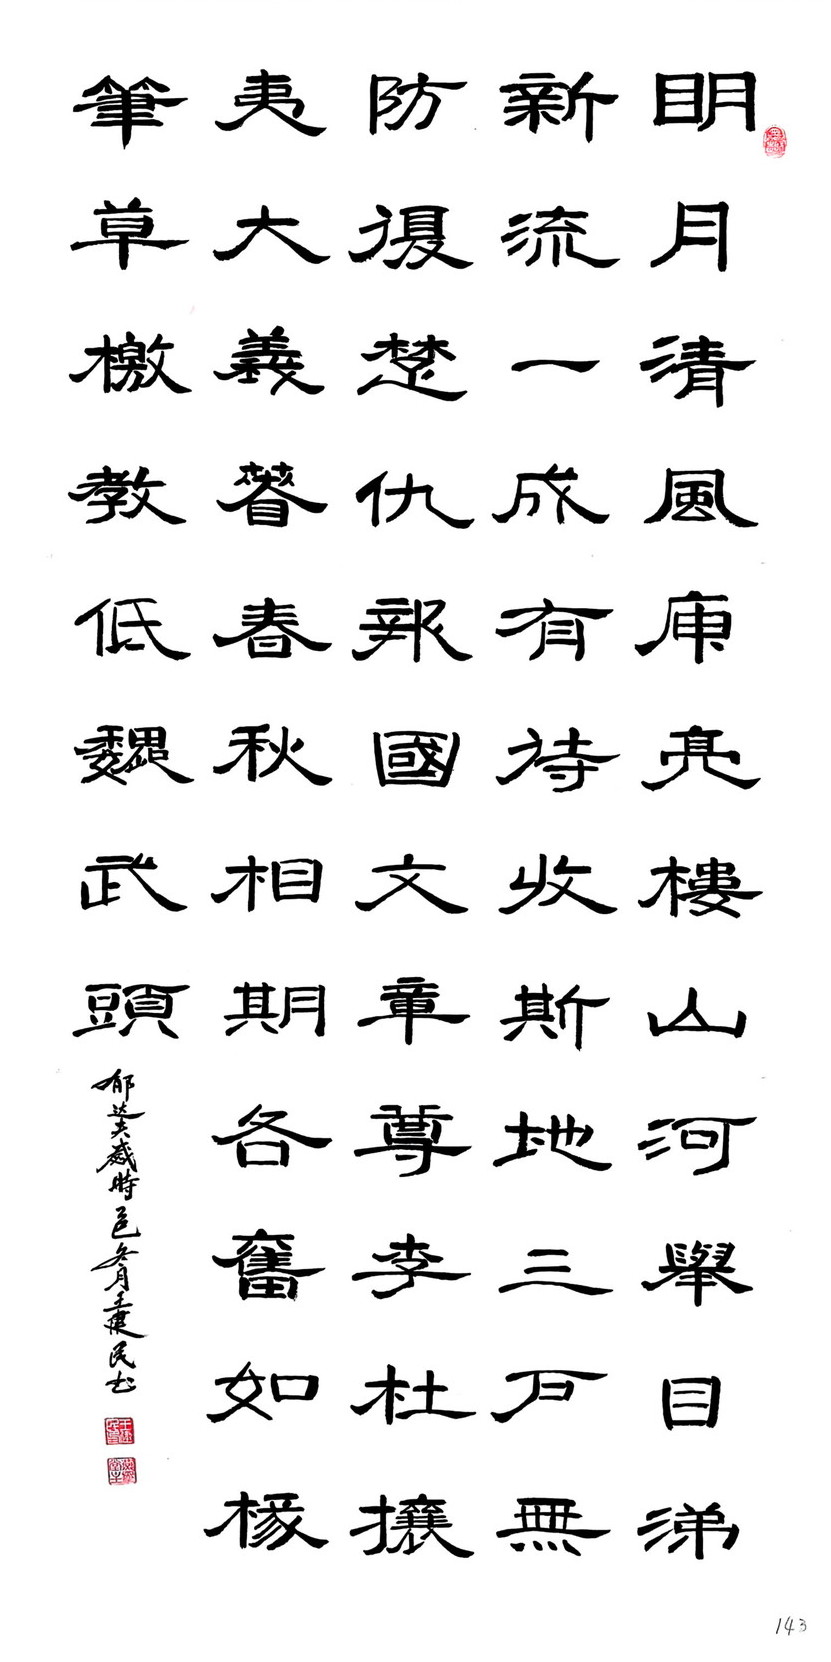 明月清風庾亮樓山河舉目涕
新流一成有待收斯地三户無
防復楚仇報國文章尊李杜攘
夷大義著春秋相期各奮如椽
筆草檄教低魏武頭
郁达夫感時冬月王建民书
143